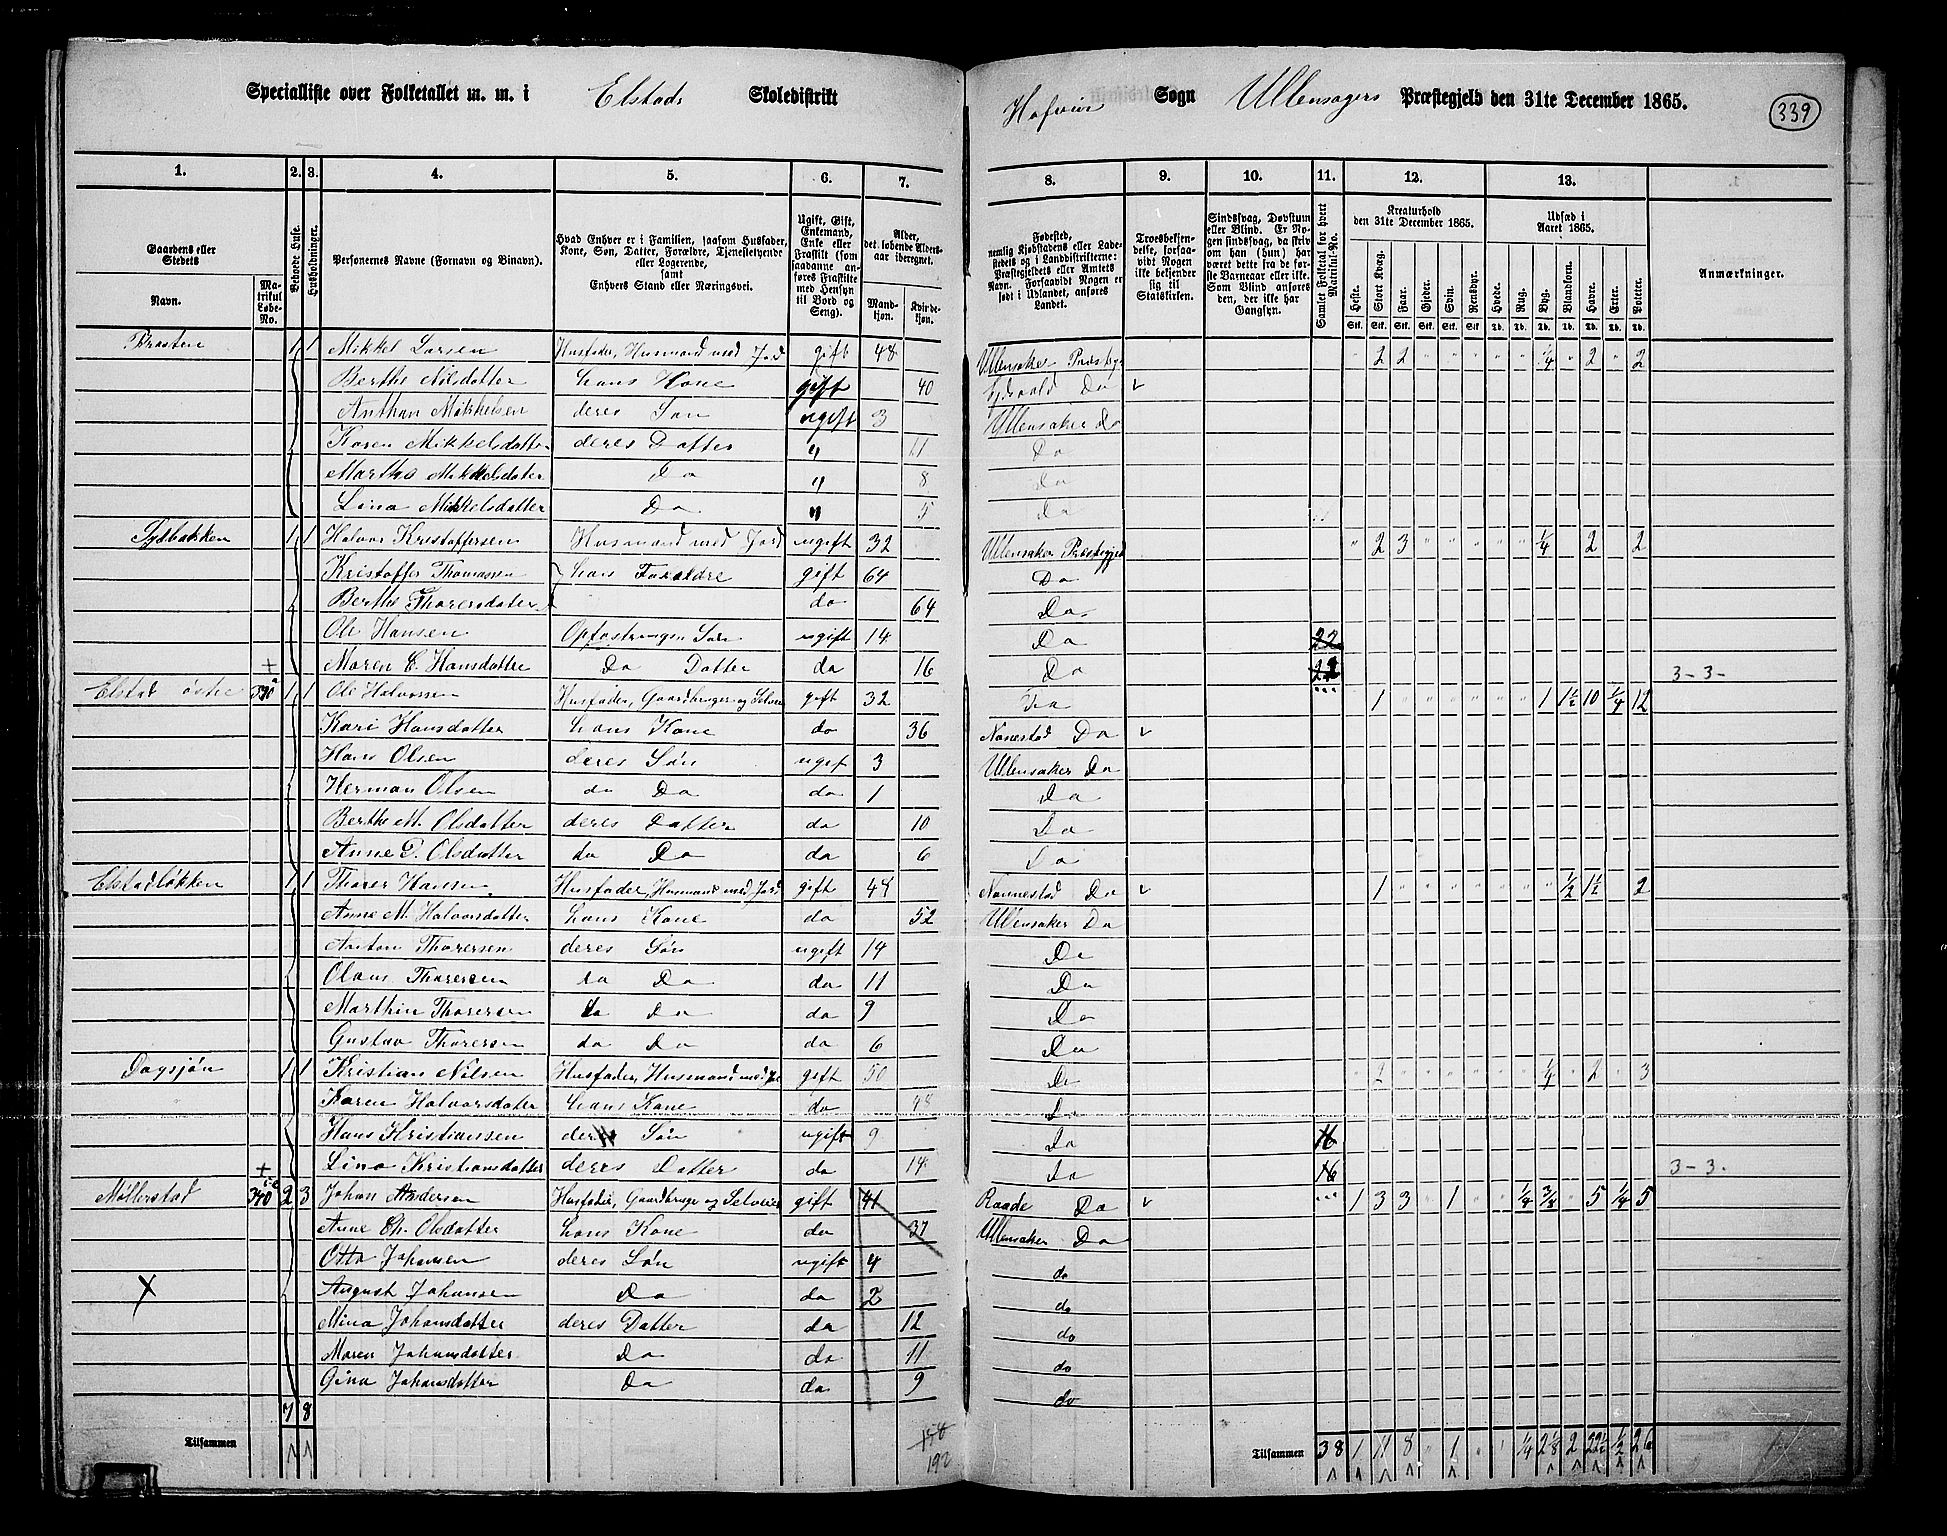 Specialliste over Folketallet m. m. i Elstads Skoledistrikt Hofvin Sogn Ullensagers Præstegjeld den 31te December 1865. 339
1. 2. 3. 4. 5. 6. 7. 8. 9. 10. 11. 12. 13.
Gaardens eller Stedets Navn. Matrikul Løbe-No. Beboede Huse. Husholdninger. Personernes Navne (Fornavn og Binavn).
Hvad Enhver er i Familien, saasom Husfader, Kone, Søn, Datter, Forældre, Tjenestetyende eller Logerende, samt Enhvers Stand eller Næringsvei.
Ugift, Gift, Enkemand, Enke eller Fraskilt (som saadanne anføres Fraskilte med Hensyn til Bord og Seng).
Alder, det løbende Aldersaar iberegnet. Mandkjøn. Kvindekjøn.
Fødested, nemlig Kjøbstadens eller Ladestedets og i Landdistrikterne: Præstegjeldets eller Amtets Navn. Forsaavidt Nogen er født i Udlandet, anføres Landet.
Troesbekjendelse, forsaavidt Nogen ikke bekjender sig til Statskirken.
Sindssvag, Døvstum eller Blind. Er Nogen sindssvag, da skrives om han (hun) har været dette fra de første Barneaar eller ikke. Som Blind anføres den, der ikke har Gangsyn.
Samlet Folketal for hvert Matrikul-No.
Kreaturhold den 31te December 1865. Heste. Stort Kvæg. Faar. Gjeder. Svin. Rensdyr.
Udsæd i Aaret 1865. Hvede. Rug. Byg. Blandkorn. Havre. Erter. Poteter.
Anmærkninger.
Braaten 1 1 Mikkel Larsen Husfader, Husmand med Jord gift 48 Ullensaker Præstegj 2 2 1/4 2 2
Berthe Nilsdatter hans Kone gift 40 Eidsvold Do
Anthon Mikkelsen deres Søn ugift 3 Ullensaker do
Karen Mikkelsdatter deres Datter " 11 Do
Marthe Mikkelsdatter Do " 8 Do
Lina Mikkelsdatter Do " 5 Do
Sydbakken 1 1 Halvor Kristoffersen Husmand med Jord ugift 32 Ullensaker Præstegjeld 2 3 1/4 2 2
Kristoffer Thomassen hans Forældre gift 64 Do
Berthe Thoresdatter do 64 Do
Ole Hansen Opfostringen Søn ugift 14 Do 22
Maren E. Hansdatter Do Datter do 16 Do 22 3-3-
Elstad østre 390 1 1 Ole Halvorsen Husfader, Gaardbruger og Selveier gift 32 Do 1 1 1 1/2 10 1/4 12
Kari Hansdatter hans Kone do 36 Nanestad Do
Hans Olsen deres Søn ugift 3 Ullensaker Do
Herman Olsen do Do do 1 Do
Berthe M. Olsdatter deres Datter do 10 Do
Anne D. Olsdatter do Do do 6 Do
Elstadløkken 1 1 Thorer Hansen Husfader, Husmand med Jord gift 44 Nannestad Do 1 1/2 1 1/2 2
Anne M. Halvorsdatter hans Kone do 52 Ullensaker Do
Anton Thorersen deres Søn ugift 14 Do
Olaus Thorersen do Do do 11 Do
Marthin Thorersen do Do do 9 Do
Gustav Thorersen do Do do 6 Do
Dagsjøn 1 1 Kristian Nilsen Husfader, Husmand med Jo gift 50 Do 2 1/4 2 3
Karen Halvorsdatter hans Kone do 48 Do
Hans Kristiansen deres Søn ugift 9 Do 16
Lina Kristiansdatter deres Datter do 14 Do 16 3-3-
Møllerstad 390 2 3 Johan Andersen Husfader, Gaardbruger og Selveier gift 41 Raade Do 1 3 3 1 1/4 3/8 5 1/4 5
Anne Ch. Olsdatter hans Kone do 37 Ullensaker Do
Otto Johansen deres Søn ugift 4 do
August Johansen Do do 2 do
Mina Johansdatter deres Datter do 12 do
Maren Johansdatter Do do 11 do
Gina Johansdatter Do do 9 do
7 8
Tilsammen 192 Tilsammen 38 1 11 8 1 1/4 2 1/8 2 22 1/2 1/2 26